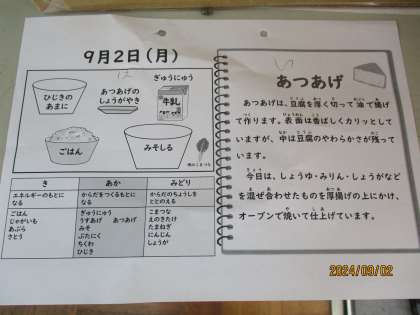 9月2日(月)
ひじきの
あまに
あつあげの
しょうがやき
ぎゅうにゅう
牛乳
ごはん
みそしる
き
あか
みどり
エネルギーのもとに
なる
からだをつくるもとに
なる
からだのちょうしを
ととのえる
ごはん
じゃがいも
あぶら
さとう
ぎゅうにゅう
うすあげ あつあげ
みそ
ぶたにく
ちくわ
ひじき
こまつな
えのきたけ
たまねぎ
にんじん
しょうが
あつあげ
あつあげは、豆腐を厚く切って油で揚げ
て作ります。表面は香ばしくカリッとして
いますが、中は豆腐のやわらかさが残って
います。
今日は、しょうゆ・みりん・しょうがなど
を混ぜ合わせたものを厚揚げの上にかけ、
オーブンで焼いて仕上げています。
2024/09/02